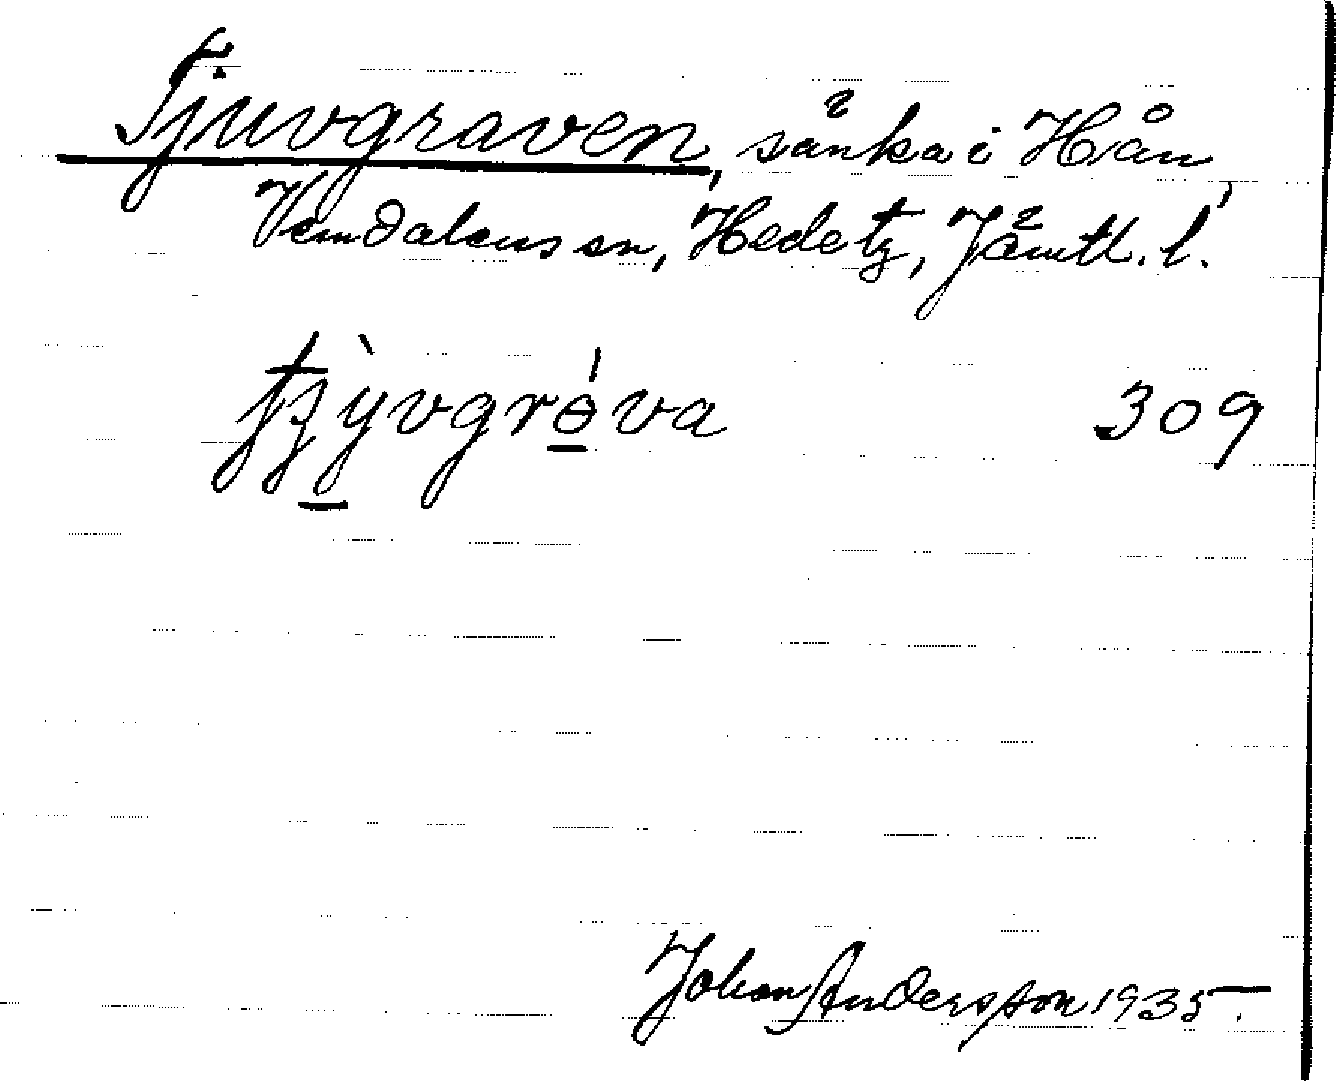 Tjuvgraven, sänka i Hån,
Vemdalens sn, Hede tg, Jämtl. l.
tʒỳvgrǿva 309
Johan Andersson 1935.